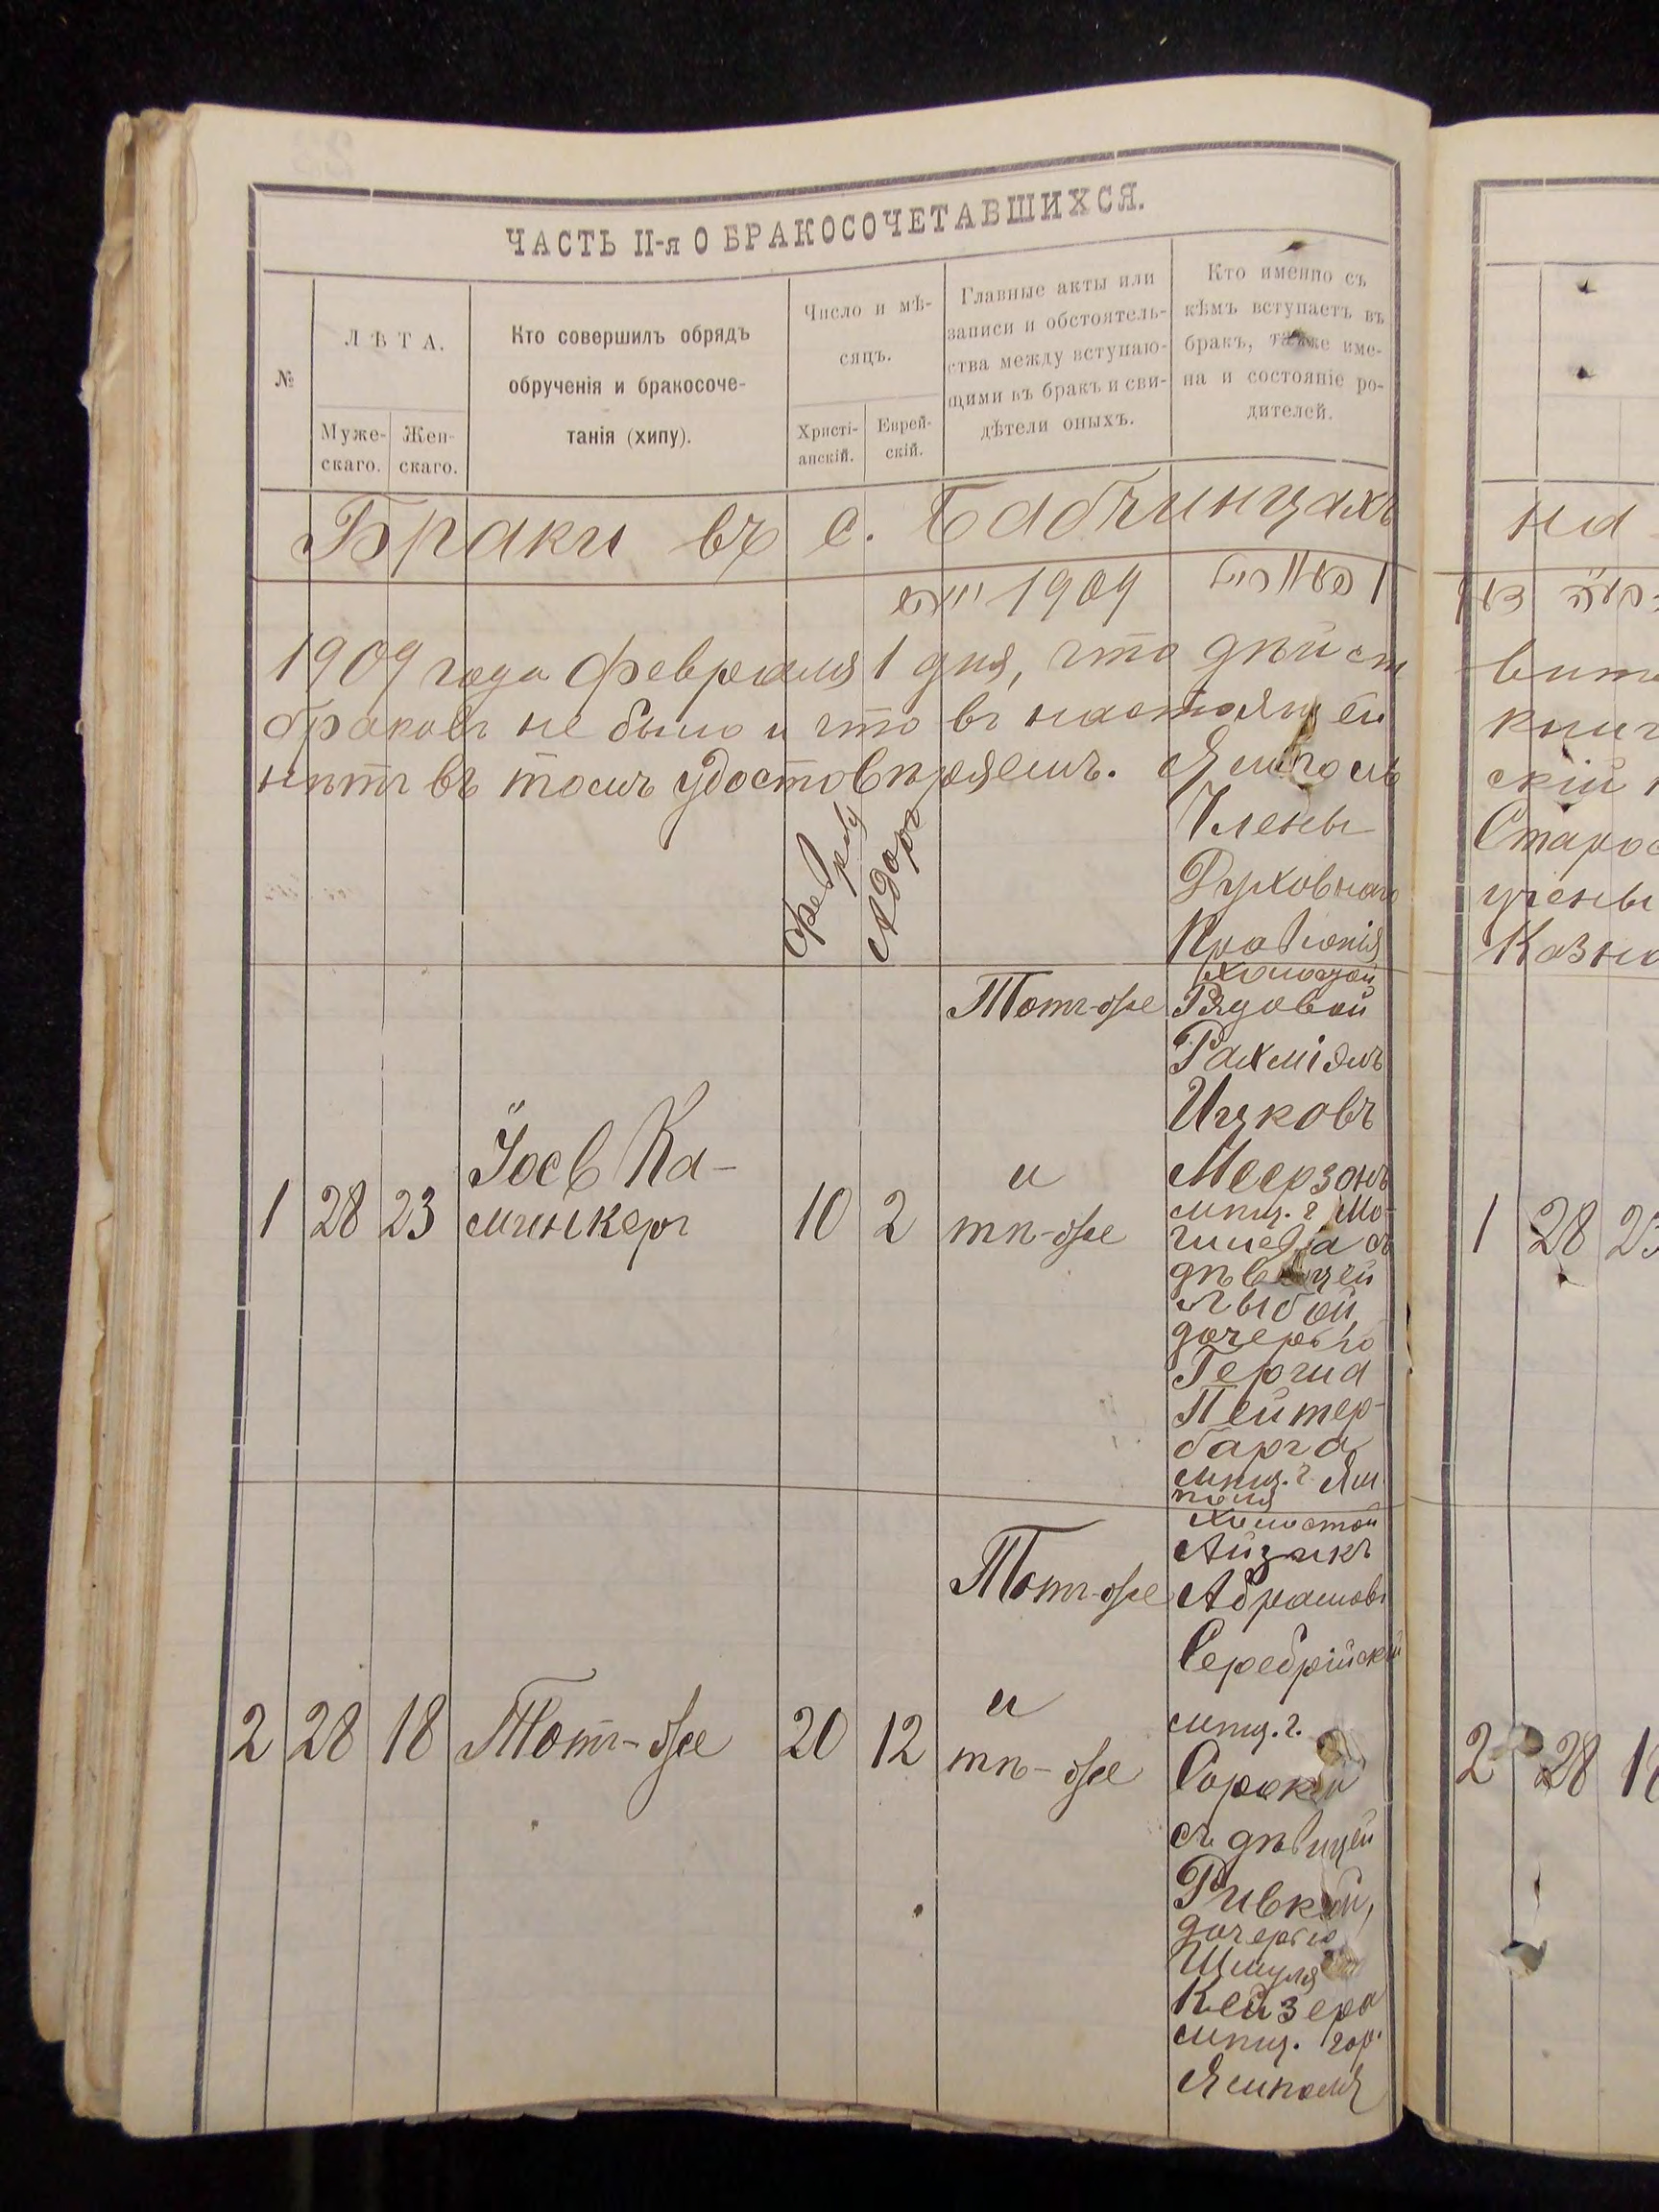 ЧАСТЬ II-я О БРАКОСОЧЕТАВШИХСЯ.
№
ЛѢТА.
Муже-
скаго.
Жен-
скаго.
Кто совершилъ обрядъ
обрученія и бракосоче-
танія (хипу).
Число и мѣ-
сяцъ.
Христі-
анскій.
Еврей-
скій.
Главные акты или
записи и обстоятель-
ства между вступаю-
щими въ бракъ и сви-
дѣтели оныхъ.
Кто именно съ
кѣмъ вступаетъ въ
бракъ, также име-
на и состояніе ро-
дителей.
Браки въ с. Бабчинцахъ
1909
1909 года февраля 1 дня, что дѣйст
браковъ не было и что въ настоящей
нѣтъ въ томъ удостовѣряемъ. Ямполь
Члены
Духовнаго
Правленія
Февраля
Адаръ
1
28
23
Іосъ Ка-
минкеръ
10
2
Тотъ-же
и
тѣ-же
Холостой
Рядовой
Рахміэль
Ицковъ
Меерзонъ
мѣщ. г. Мо-
гилева съ
дѣвицей
дочерью
Гершa
Пейтер-
барга
мѣщ. г. Ям
поля
2
28
18
Тотъ-же
20
12
Тотъ-же
и
тѣ-же
Холостой
Айзикъ
Абрамовъ
Серебрійскій
мѣщ. г.
Сороки
съ дѣвицей
Ривкой,
дочерью
Шмуля
Кейзера
мѣщ. гор.
Ямполя
на
вит
книг
скій
Старос
ученый
Казна
1
28
23
2
28
18